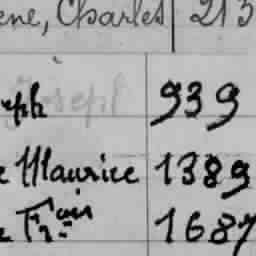 ene, Charles 213
eph 939
e Maurice 1389
e Frçois 1687